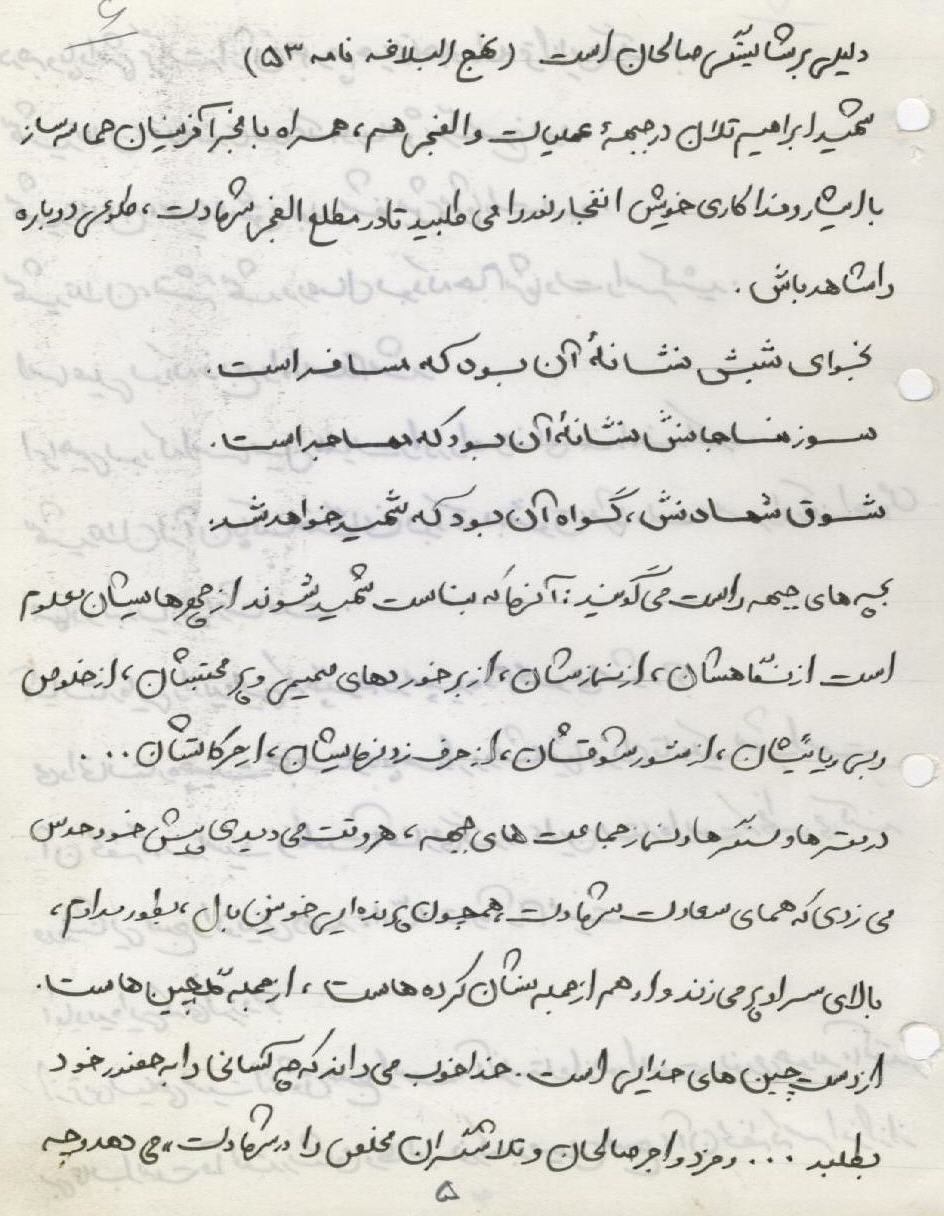 ۶
دلیل بر شایستگی صالحان است (نهج البلاغه نامه ۵۳)
شهید ابراهیم تلان در جبههٔ عملیات والفجر هم، همراه با فجر آفرینان حماسه ساز
با ایثار و فداکاری خویش انفجار نور را می طلبید تا در مطلع الفجر شهادت، طلوعی دوباره
را شاهد باشی.
نجوای شبش نشانهٔ آن بود که مسافر است.
سوز مناجاتش نشانهٔ آن بود که مهاجر است.
شوق شهادتش، گواه آن بود که شهید خواهد شد.
بچه های جبهه راست می گویند: آنها که بناست شهید شوند از چهره هایشان معلوم
است از نگاهشان، از نمازشان، از برخوردهای صمیمی و پر محبتشان، از خلوص
و بی ریائیشان، از شور و شوقشان، از حرف زدنهایشان، از حرکاتشان ...
در مقرها و سنگرها و نماز جماعت های جبهه، هر وقت می دیدی پیش خود حدس
می زدی که همای سعادت شهادت همچون پرنده ای خونین بال، بطور مداوم،
بالای سر او پر می زند و او هم از جمله نشان کرده هاست، از جمله گلچین هاست.
از دست چین های خدایی است. خدا خوب می داند که چه کسانی را به حضور خود
بطلبد ... و مزد و اجر صالحان و تلاشگران مخلص را «در شهادت» می دهد و چه
۵